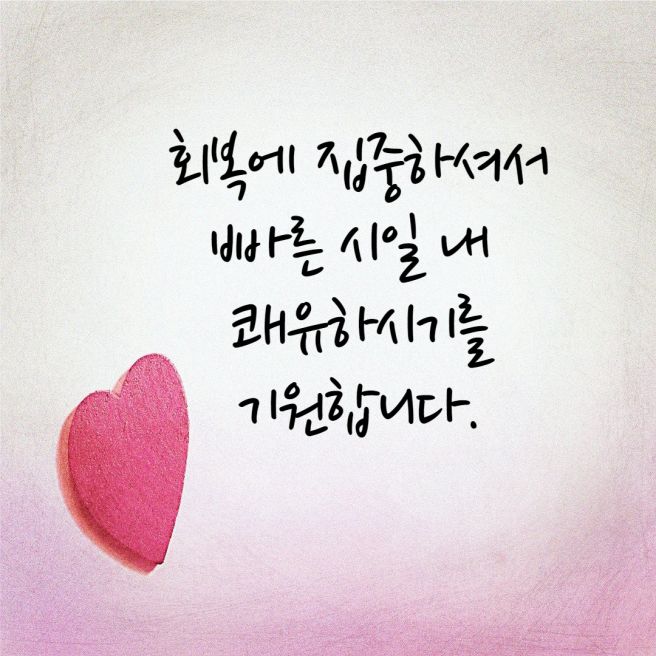 회복에 집중하셔서
빠른 시일 내
쾌유하시기를
기원합니다.